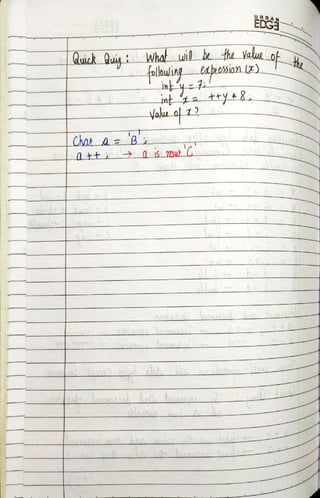 URBAN
EDGE
Quick Quiz : What will be the value of the
following expression (x)
int y = 7;
int x = ++y * 8;
Value of x?
Char a = 'B';
a++; → a is now 'C'